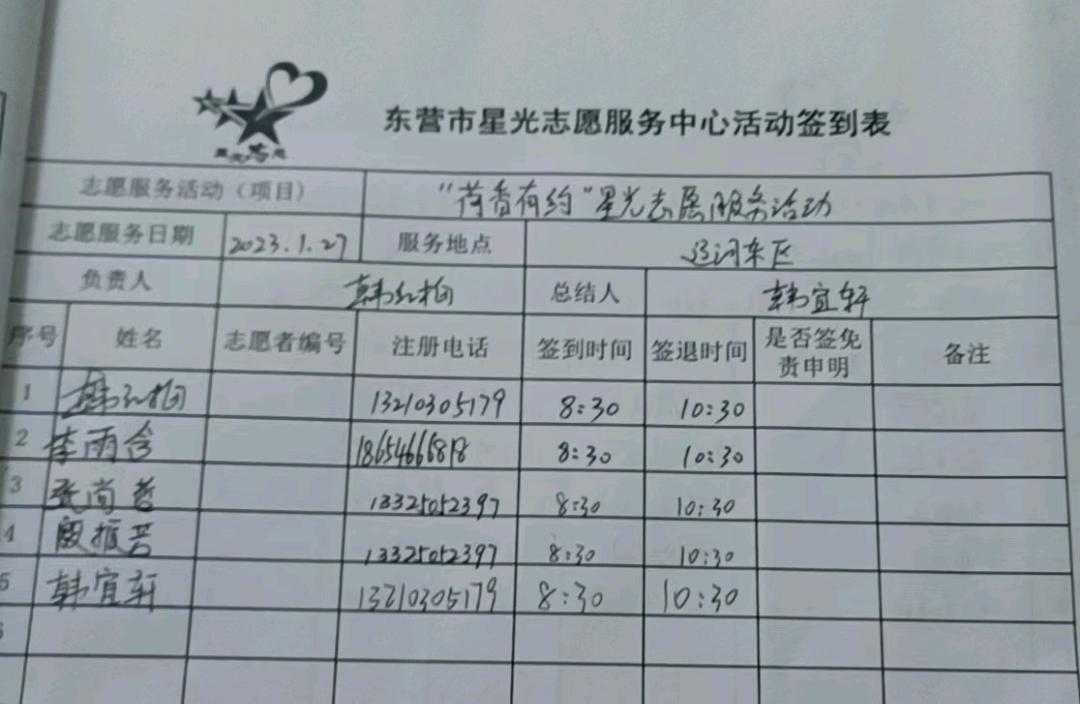 东营市星光志愿服务中心活动签到表
志愿服务活动（项目） "荷香有约"星光志愿服务活动
志愿服务日期 2023.1.27 服务地点 辽河东区
负责人 韩红梅 总结人 韩宜轩
序号 姓名 志愿者编号 注册电话 签到时间 签退时间 是否签免责申明 备注
1 韩红梅 13210305179 8:30 10:30
2 李雨含 8:30 10:30
3 张尚哲 13325052397 8:30 10:30
4 殷振芳 13325052397 8:30 10:30
5 韩宜轩 13210305179 8:30 10:30